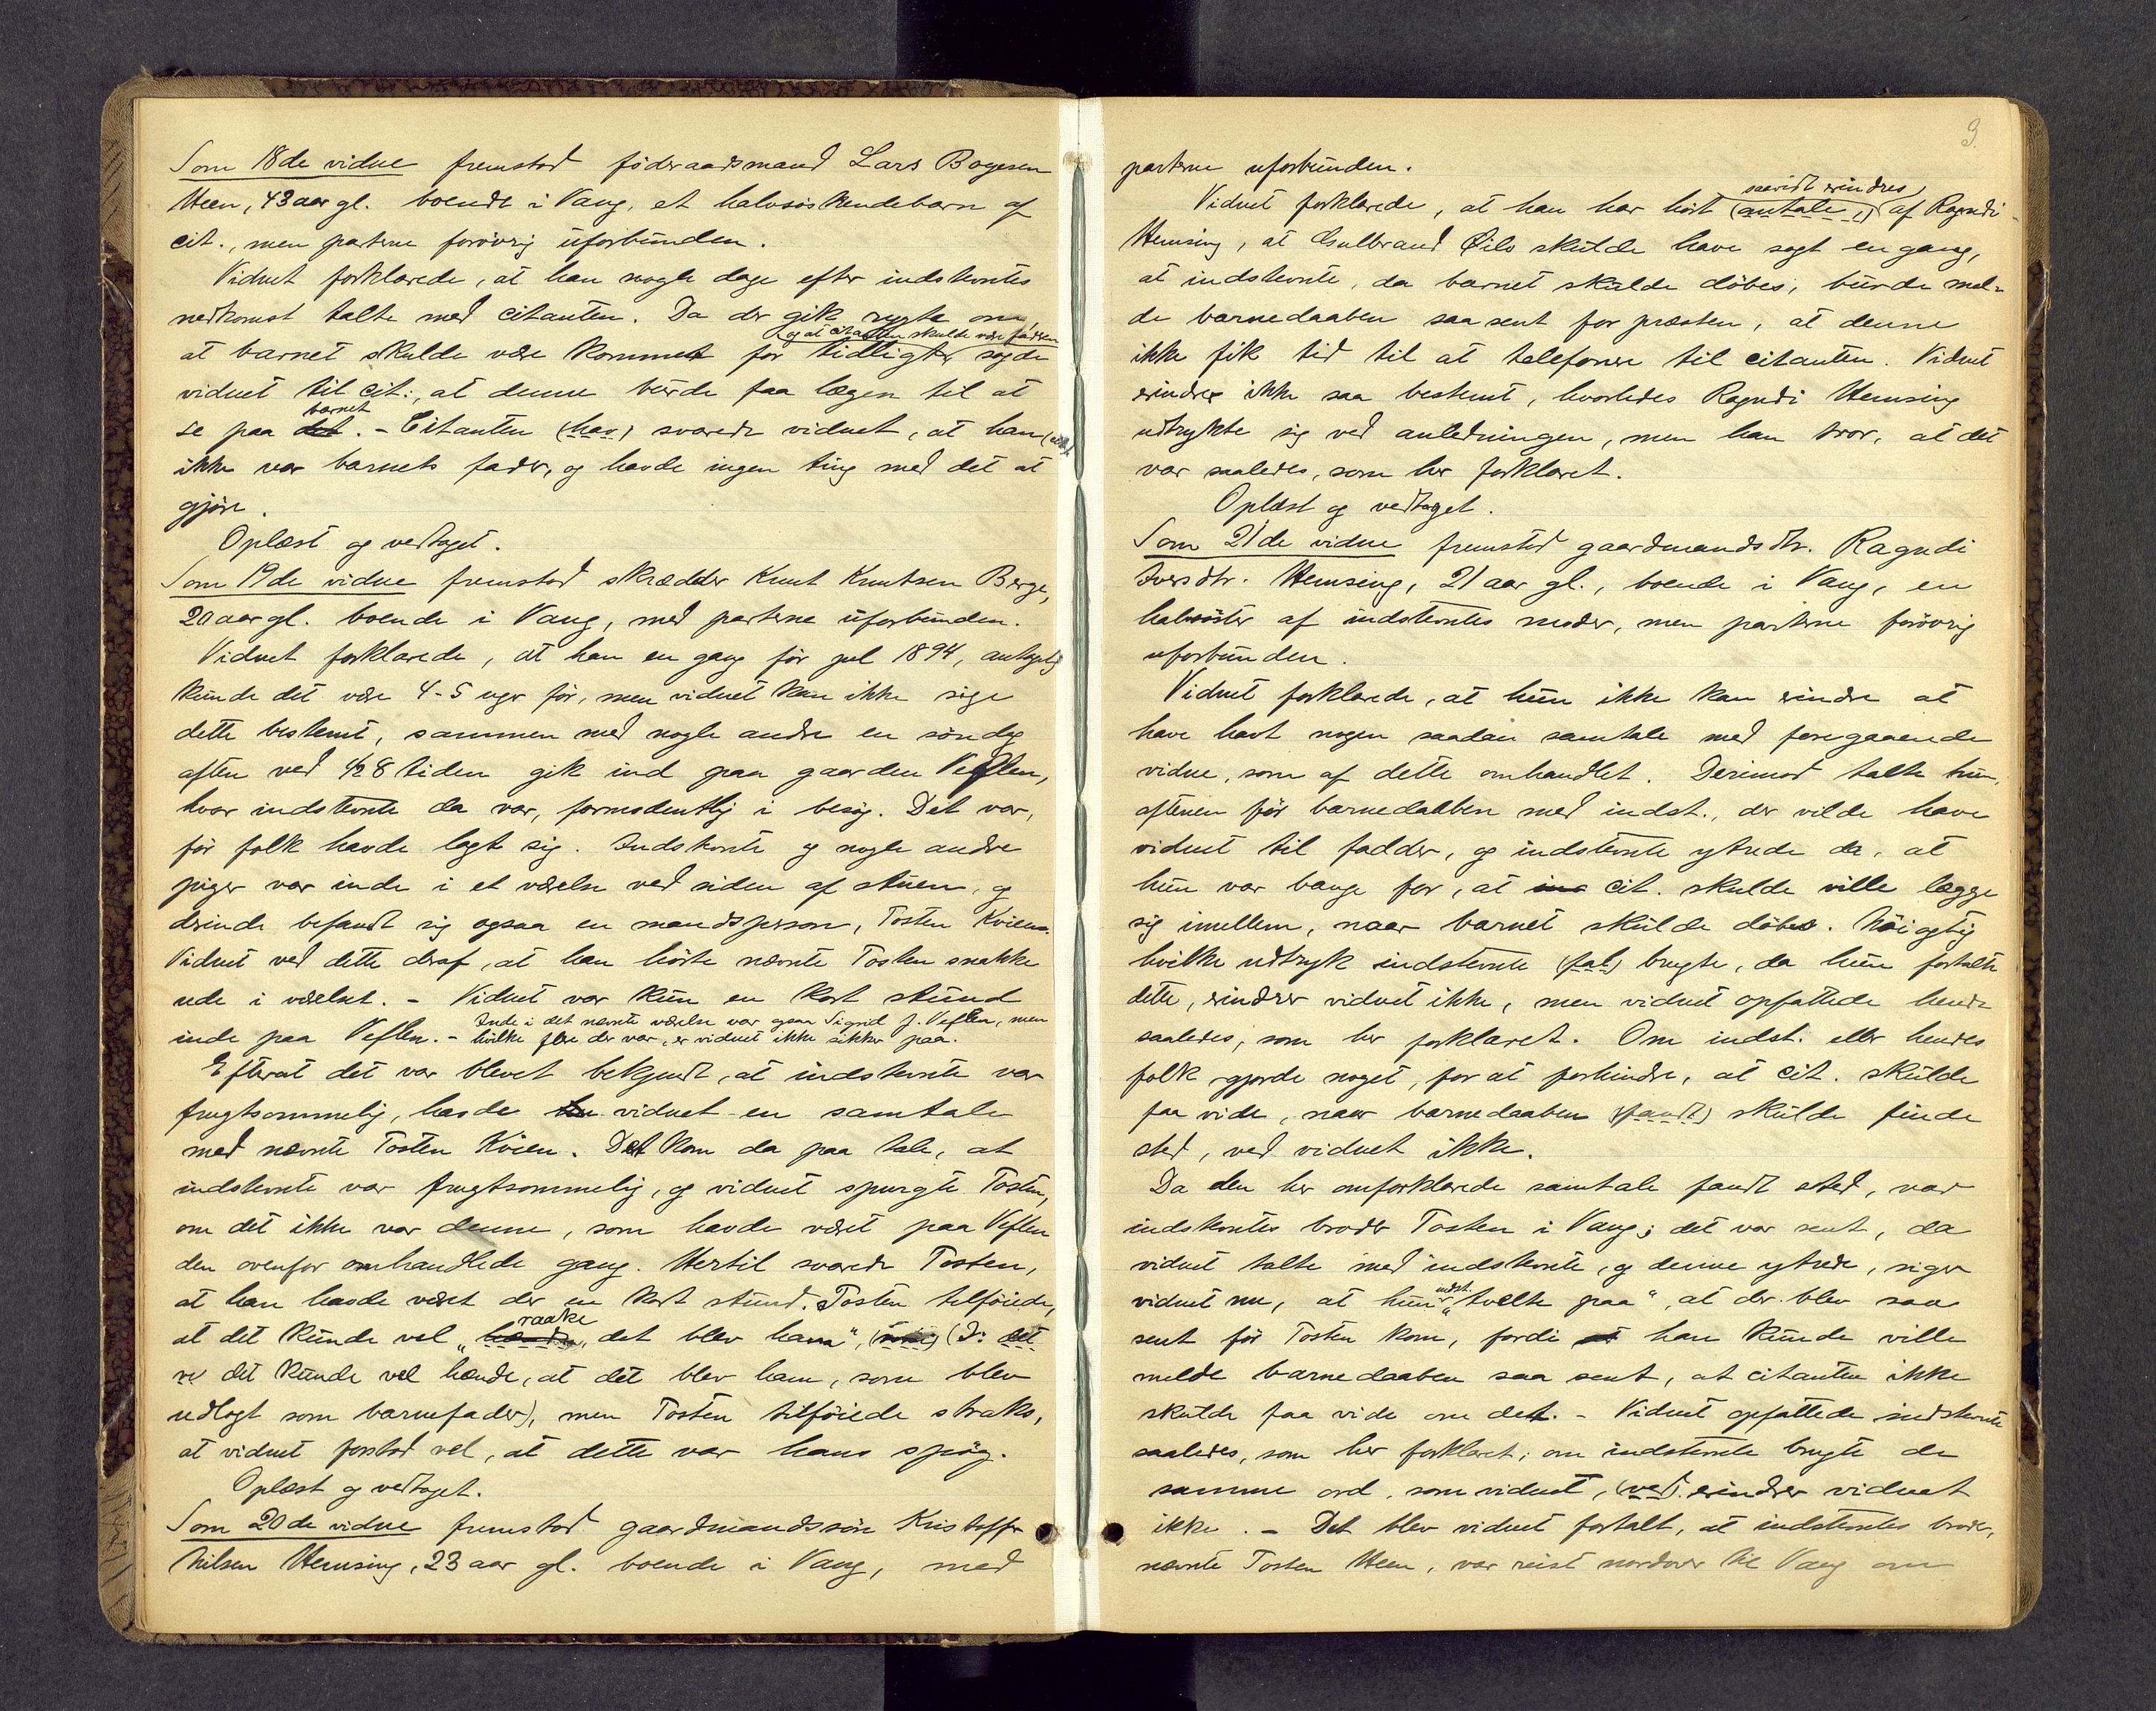 Som 18de vidne fremstod föderaadsmand Lars Bogesen
Heen, 43 aar gl. boende i Vang, et halvsöskendebarn af
cit., men parterne forövrig uforbunden.
Vidnet forklarede, at han nogle dage efter indstevntes
nedkomst talte med citanten. Da der gik rygte om,
og at citanten skulde være faderen
at barnet skulde være kommet for tidligt, sagde
vidnet til cit., at denne burde faa lægen til at
barnet
se paa det. - Citanten (hav) svarede vidnet, at han
ikke var barnets fader, og havde ingen ting med det at
gjöre.
Oplæst og vedtaget.
Som 19de vidne fremstod skrædder Knut Knutsen Berge,
20 aar gl. boende i Vang, med parterne uforbunden.
Vidnet forklarede, at han en gang för jul 1894, antagelig
kunde det være 4-5 uger för, men vidnet kan ikke sige
dette bestemt, sammen med nogle andre en söndag
aften ved 1/2 8 tiden gik ind paa gaarden Veflen,
hvor indstevnte da var, formodentlig i besög. Det var,
för folk havde lagt sig. Indstevnte og nogle andre
piger var inde i et værelse ved siden af stuen, og
derinde befandt sig ogsaa en mandsperson, Tosten Kvien.
Vidnet ved dette deraf, at han hörte nævnte Tosten snakke
ude i værelset. - Vidnet var kun en kort stund
Inde i det nævnte værelse var ogsaa Sigrid J. Veflen, men
inde paa Veflen. - hvilke flere der var, er vidnet ikke sikker paa.
Efterat det var blevet bekjendt, at indstevnte var
frugtsommelig, havde vidnet en samtale
med nævnte Tosten Kvien. Det kom da paa tale, at
indstevnte var frugtsommelig, og vidnet spurgte Tosten,
om det ikke var denne, som havde været paa Veflen
den ovenfor omhandlede gang. Hertil svarede Tosten,
at han havde været der en kort stund. Tosten tilföiede,
raake
at det kunde vel „hænde, det blev ham", (ↄ: det
det kunde vel hænde, at det blev ham, som blev
udlagt som barnefader), men Tosten tilföiede straks,
at vidnet forstod vel, at dette var hans spög.
Oplæst og vedtaget.
Som 20de vidne fremstod gaardmandssön Kristoffer
Nilsen Hemsing, 23 aar gl. boende i Vang, med
3
parterne uforbunden.
saavidt erindres
Vidnet forklarede, at han har hört (antale,) af Ragndi
Hemsing, at Gulbrand Öilo skulde have sagt en gang,
at indstevnte, da barnet skulde döbes, burde mel-
de barnedaaben saa sent for præsten, at denne
ikke fik tid til at telefonere til citanten. Vidnet
erindrer ikke saa bestemt, hvorledes Ragndi Hemsing
udtrykte sig ved anledningen, men han tror, at det
var saaledes, som her forklaret.
Oplæst og vedtaget.
Som 21de vidne fremstod gaardmandsdtr. Ragndi
Iversdtr. Hemsing, 21 aar gl., boende i Vang, en
halvsöster af indstevntes moder, men parterne forövrig
uforbunden.
Vidnet forklarede, at hun ikke kan erindre at
have havt nogen saadan samtale med foregaaende
vidne, som af dette omhandlet. Derimod talte hun,
aftenen för barnedaaben med indst., der vilde have
vidnet til fadder, og indstevnte ytrede da, at
hun var bange for, at ind cit. skulde ville lægge
sig imellem, naar barnet skulde döbes. Nöiagtig
hvilke udtryk indstevnte (fal) brugte, da hun fortalte
dette, erindrer vidnet ikke, men vidnet opfattede hende
saaledes, som her forklaret. Om indst. eller hendes
folk gjorde noget, for at forhindre, at cit. skulde
faa vide, naar barnedaaben (fandt) skulde finde
sted, ved vidnet ikke.
Da den her omforklarede samtale fandt sted, var
indstevntes broder Tosten i Vang; det var sent, da
vidnet talte med indstevnte, og denne ytrede, siger
indst.
vidnet nu, at hun „tvelte paa", at der blev saa
sent för Tosten kom, fordi at han kunde ville
melde barnedaaben saa sent, at citanten ikke
skulde faa vide om det. - Vidnet opfattede indstevnte
saaledes, som her forklaret; om indstevnte brugte de
samme ord, som vidnet, (ved) erindrer vidnet
ikke. - Det blev vidnet fortalt, at indstevntes broder,
nævnte Tosten Heen, var reist nordover til Vang om